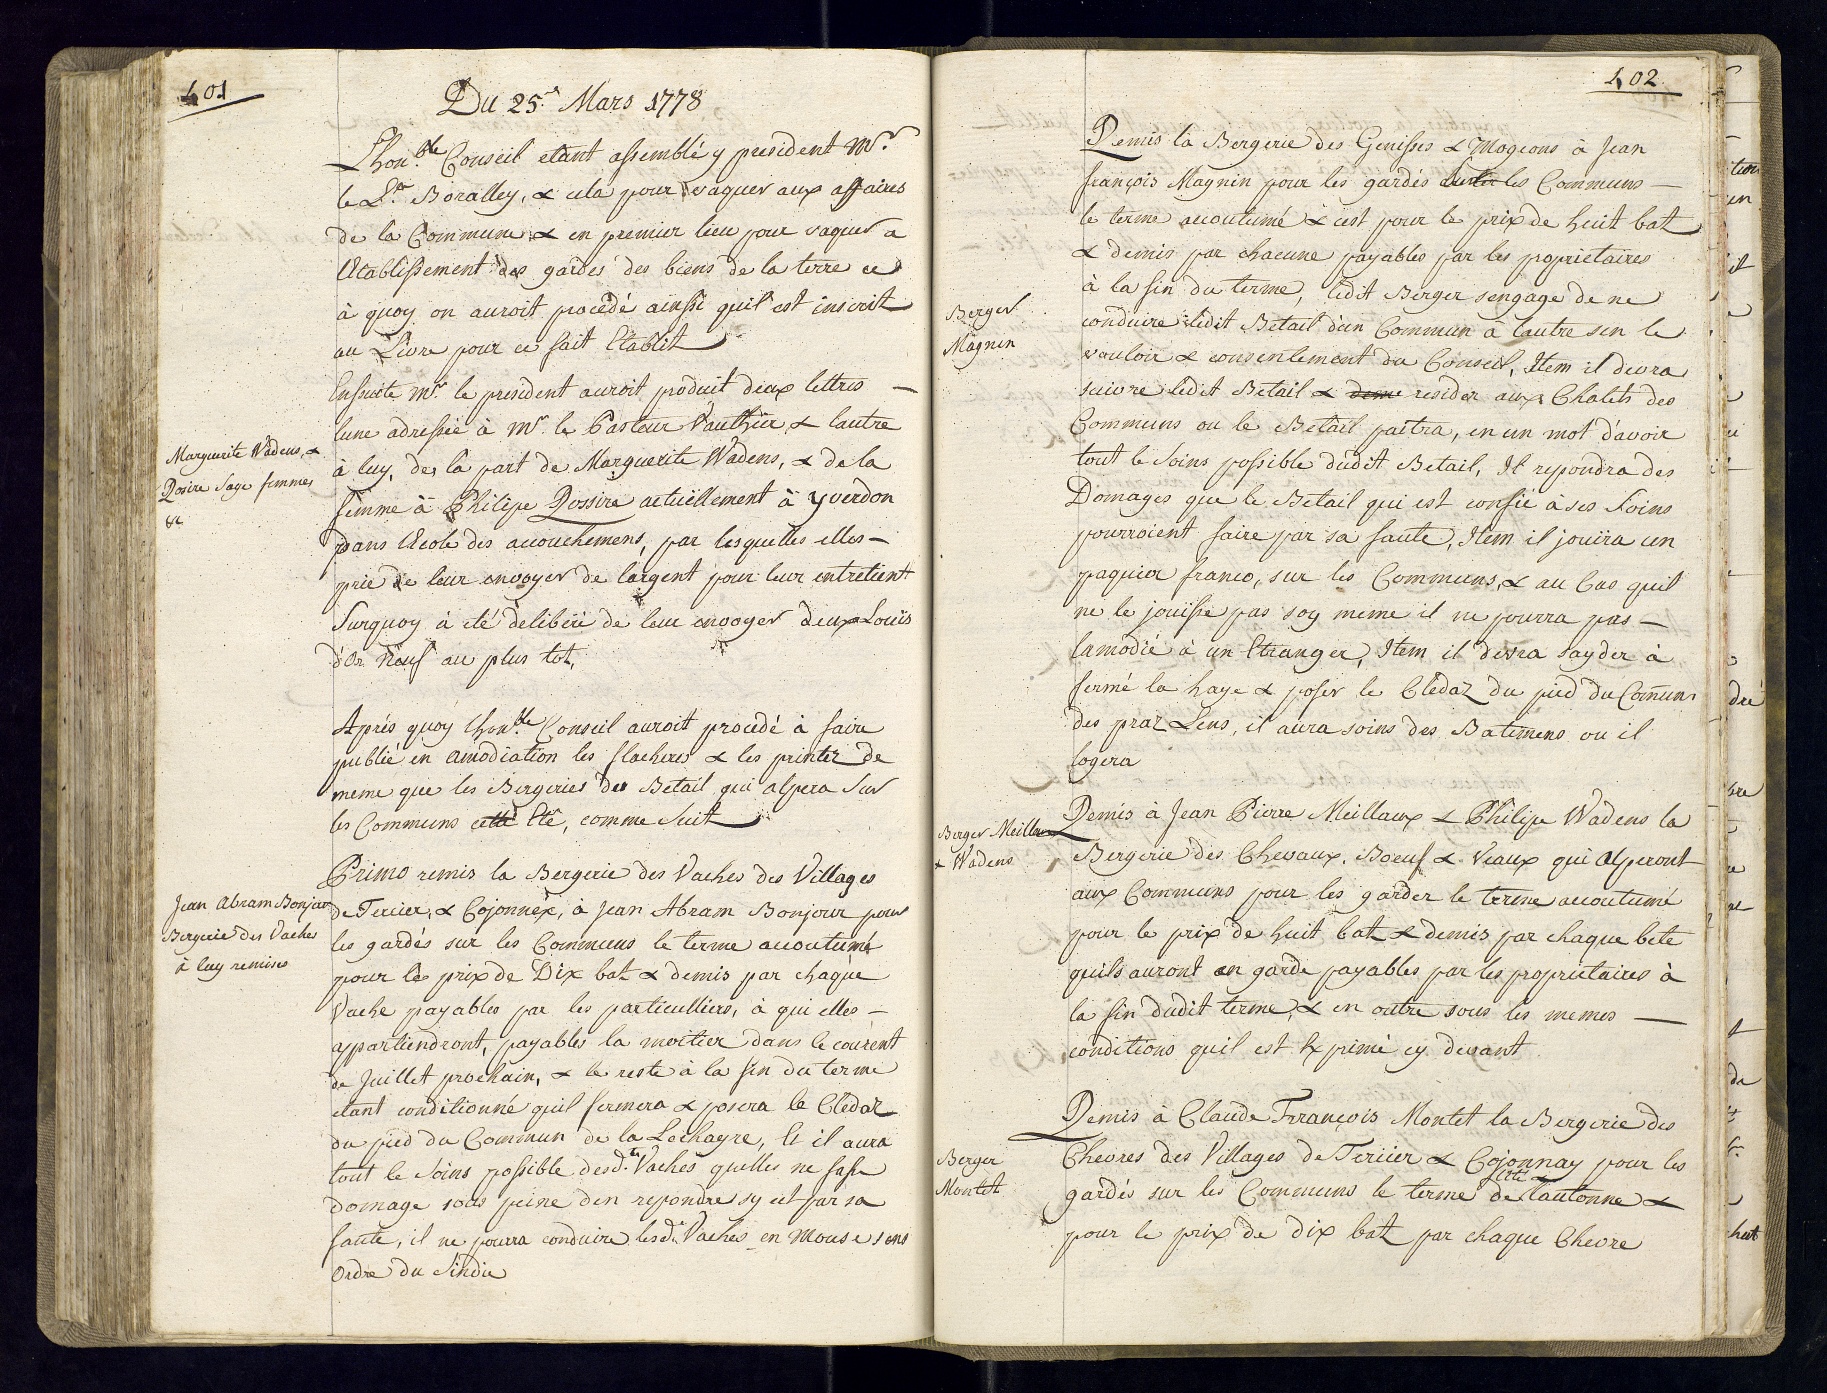 401
Du 25.e Mars 1778
Lhon.ble Conseil etant assemblé y president Mr.
le Lt. Boralley, & cela pour vaquer aux affaires
de la Commune & en premier lieu pour vaquer a
Letablissement des gardes des biens de la terre ce
à quoy on auroit procédé ainsi quil est inscrit
au Livre pour ce fait Etablit
Ensuite Mr. le president auroit produit deux lettres —
lune adressée à Mr. le Pasteur Vauthier, & lautre
à luy, de la part de Marguerite Wadens, & de la
femme à Philipe Dossire actuëllement à Yverdon
dans lécole des acouchemens, par lesquelles elles —
prie de leur envoyer de largent pour leur entretient
Surquoy à eté deliberé de leur envoyer deux Louis
d'Or neuf au plus tot.
Marguerite Wadens, &
Dosire Sage femmes
&c
Aprés quoy Lhon.ble Conseil auroit procedé à faire
publié en amodiation les flacheres & les printez de
meme que les Bergeries des Betail qui alpera sur
les Communs cette Eté, comme suit
Primo remis la Bergerie des Vaches des Villages
de Terciér, & Cojonnex, à Jean Abram Bonjour pour
les gardés sur les Communs le terme acoutumé
pour le prix de Dix bat & demis par chaque
Vache payables par les particulliers, à qui elles —
appartiendront, payables la moitier dans le courent
de Juillet prochain, & le reste à la fin du terme
etant conditionné quil fermera & posera le Clédaz
du pied du Commun de la Lechayre, Et il aura
tout le soins possible desd.tes Vaches quelles ne fasse
domage sous peine den repondre sy cet par sa
faute, il ne pourra conduire lesd. Vaches en Mouse sens
Ordre du Sindic
Jean Abram Bonjour
Bergerie des Vaches
à luy remises
402
Remis la Bergerie des Genisses & Mogeons à Jean
françois Magnin pour les gardés sur les Communs —
le terme acoutumé & cest pour le prix de huit bat
& demis par chacune payables par les propriétaires
à la fin du terme, ledit Berger sengage de ne
conduire ledit Betail dun Commun à lautre sen le
vouloir & consentement du Conseil, Item il devra
suivre ledit Betail & resider aux Chalets des
Communs ou le Betail paitra, en un mot d'avoir
tout le Soins possible dudit Betail, Il repondra des
Domages que le Betail qui est confié à ses Soins
pourroient faire par sa faute, Item il jouira un
paquier franco, sur les Communs, & au Cas quil
ne le jouisse pas soy meme il ne pourra pas —
lamodié à un Etranger, Item il devra sayder à
fermé la haye & poser le Clédaz du pied du Comun
des praz Lens, il aura soins des Batimens ou il
logera
Berger
Magnin
Remis à Jean Pierre Meillaux & Philipe Wadens la
Bergerie des Chevaux, Boeuf & Veaux qui Alperont
aux Communs pour les garder le terme acoutumé
pour le prix de huit bat & demis par chaque bete
quils auront en garde payables par les proprietaires à
la fin dudit terme, & en outre sous les memes —
conditions quil est Exprimé cy devant
Berger Meillaux
& Wadens
Remis à Claude François Montet la Bergerie des
Chevres des Villages de Terciér & Cojonnay pour les
gardés sur les Communs le terme de leté & lautonne &
pour le prix de dix batz par chaque Chevre
Berger
Montet